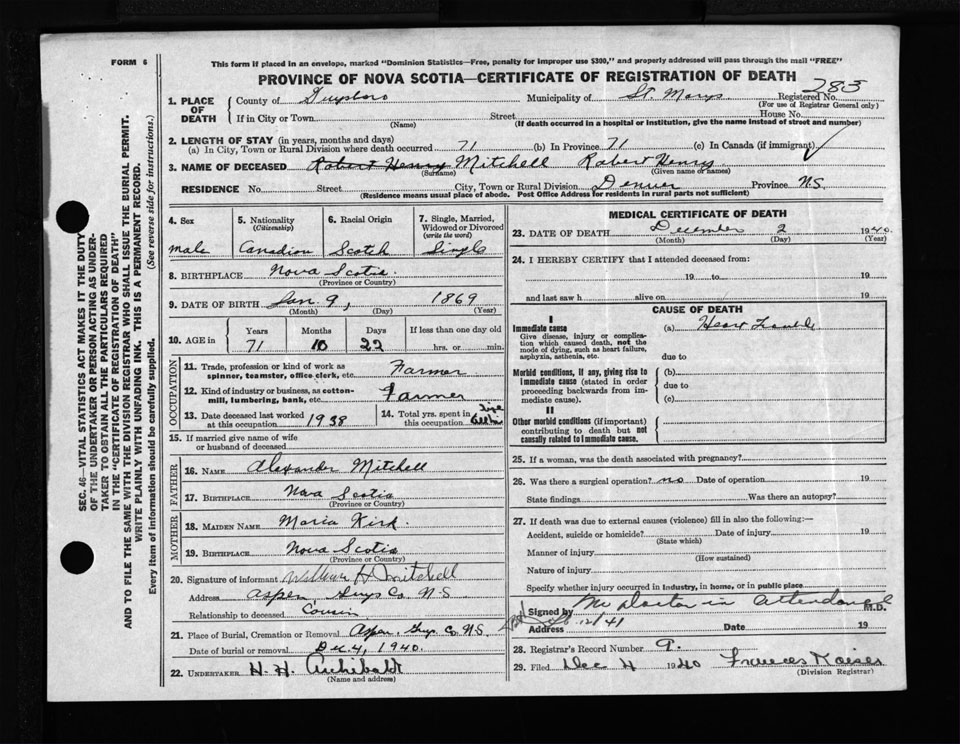 FORM 6
This form if placed in an envelope, marked "Dominion Statistics—Free, penalty for improper use $300," and properly addressed will pass through the mail "FREE"
PROVINCE OF NOVA SCOTIA—CERTIFICATE OF REGISTRATION OF DEATH
283
1. PLACE OF DEATH
County of Guysboro Municipality of St. Marys Registered No.
(For use of Registrar General only)
If in City or Town Street House No.
(Name) (If death occurred in a hospital or institution, give the name instead of street and number)
2. LENGTH OF STAY (in years, months and days)
(a) In City, Town or Rural Division where death occurred 71 (b) In Province 71 (c) In Canada (if immigrant)
3. NAME OF DECEASED Robert Henry Mitchell Robert Henry
(Surname) (Given name or names)
RESIDENCE No. Street City, Town or Rural Division Denver Province N.S.
(Residence means usual place of abode. Post Office Address for residents in rural parts not sufficient)
4. Sex
male
5. Nationality
(Citizenship)
Canadian
6. Racial Origin
Scotch
7. Single, Married, Widowed or Divorced
(write the word)
Single
8. BIRTHPLACE Nova Scotia
(Province or Country)
9. DATE OF BIRTH Jan. 9, 1869
(Month) (Day) (Year)
10. AGE in
Years Months Days If less than one day old
71 10 22 hrs. or min.
OCCUPATION
11. Trade, profession or kind of work as spinner, teamster, office clerk, etc. Farmer
12. Kind of industry or business, as cotton-mill, lumbering, bank, etc. Farmer
13. Date deceased last worked at this occupation 1938
14. Total yrs. spent in this occupation
15. If married give name of wife or husband of deceased
FATHER
16. NAME Alexander Mitchell
17. BIRTHPLACE Nova Scotia
(Province or Country)
MOTHER
18. MAIDEN NAME Maria Kirk
19. BIRTHPLACE Nova Scotia
(Province or Country)
20. Signature of informant William H Mitchell
Address Aspen, Guys Co. N.S
Relationship to deceased Cousin
21. Place of Burial, Cremation or Removal Aspen, Guys Co. N.S.
Date of burial or removal Dec. 4, 1940.
22. UNDERTAKER H. H. Archibald
(Name and address)
MEDICAL CERTIFICATE OF DEATH
23. DATE OF DEATH December 2 1940.
(Month) (Day) (Year)
24. I HEREBY CERTIFY that I attended deceased from:
19 to 19
and last saw h alive on 19
CAUSE OF DEATH
I
Immediate cause
Give disease, injury or complication which caused death, not the mode of dying, such as heart failure, asphyxia, asthenia, etc.
(a) Heart Trouble
due to
Morbid conditions, if any, giving rise to immediate cause (stated in order proceeding backwards from immediate cause).
(b)
due to
(c)
II
Other morbid conditions (if important) contributing to death but not causally related to immediate cause.
25. If a woman, was the death associated with pregnancy?
26. Was there a surgical operation? no Date of operation 19
State findings Was there an autopsy?
27. If death was due to external causes (violence) fill in also the following:—
Accident, suicide or homicide? Date of injury 19
(State which)
Manner of injury
(How sustained)
Nature of injury
Specify whether injury occurred in industry, in home, or in public place
Signed by No Doctor in attendance M.D.
12/41
Address Date 19
28. Registrar's Record Number 9.
29. Filed Dec 4 1940 Frances Kaiser
(Division Registrar)
SEC. 46—VITAL STATISTICS ACT MAKES IT THE DUTY
OF THE UNDERTAKER OR PERSON ACTING AS UNDER-
TAKER TO OBTAIN ALL THE PARTICULARS REQUIRED
IN THE "CERTIFICATE OF REGISTRATION OF DEATH"
AND TO FILE THE SAME WITH THE DIVISION REGISTRAR WHO SHALL ISSUE THE BURIAL PERMIT.
WRITE PLAINLY WITH UNFADING INK. THIS IS A PERMANENT RECORD.
Every item of information should be carefully supplied. (See reverse side for instructions.)